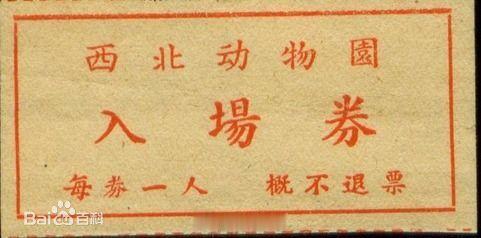 西北动物園
入場券
每券一人 概不退票
Bai度百科